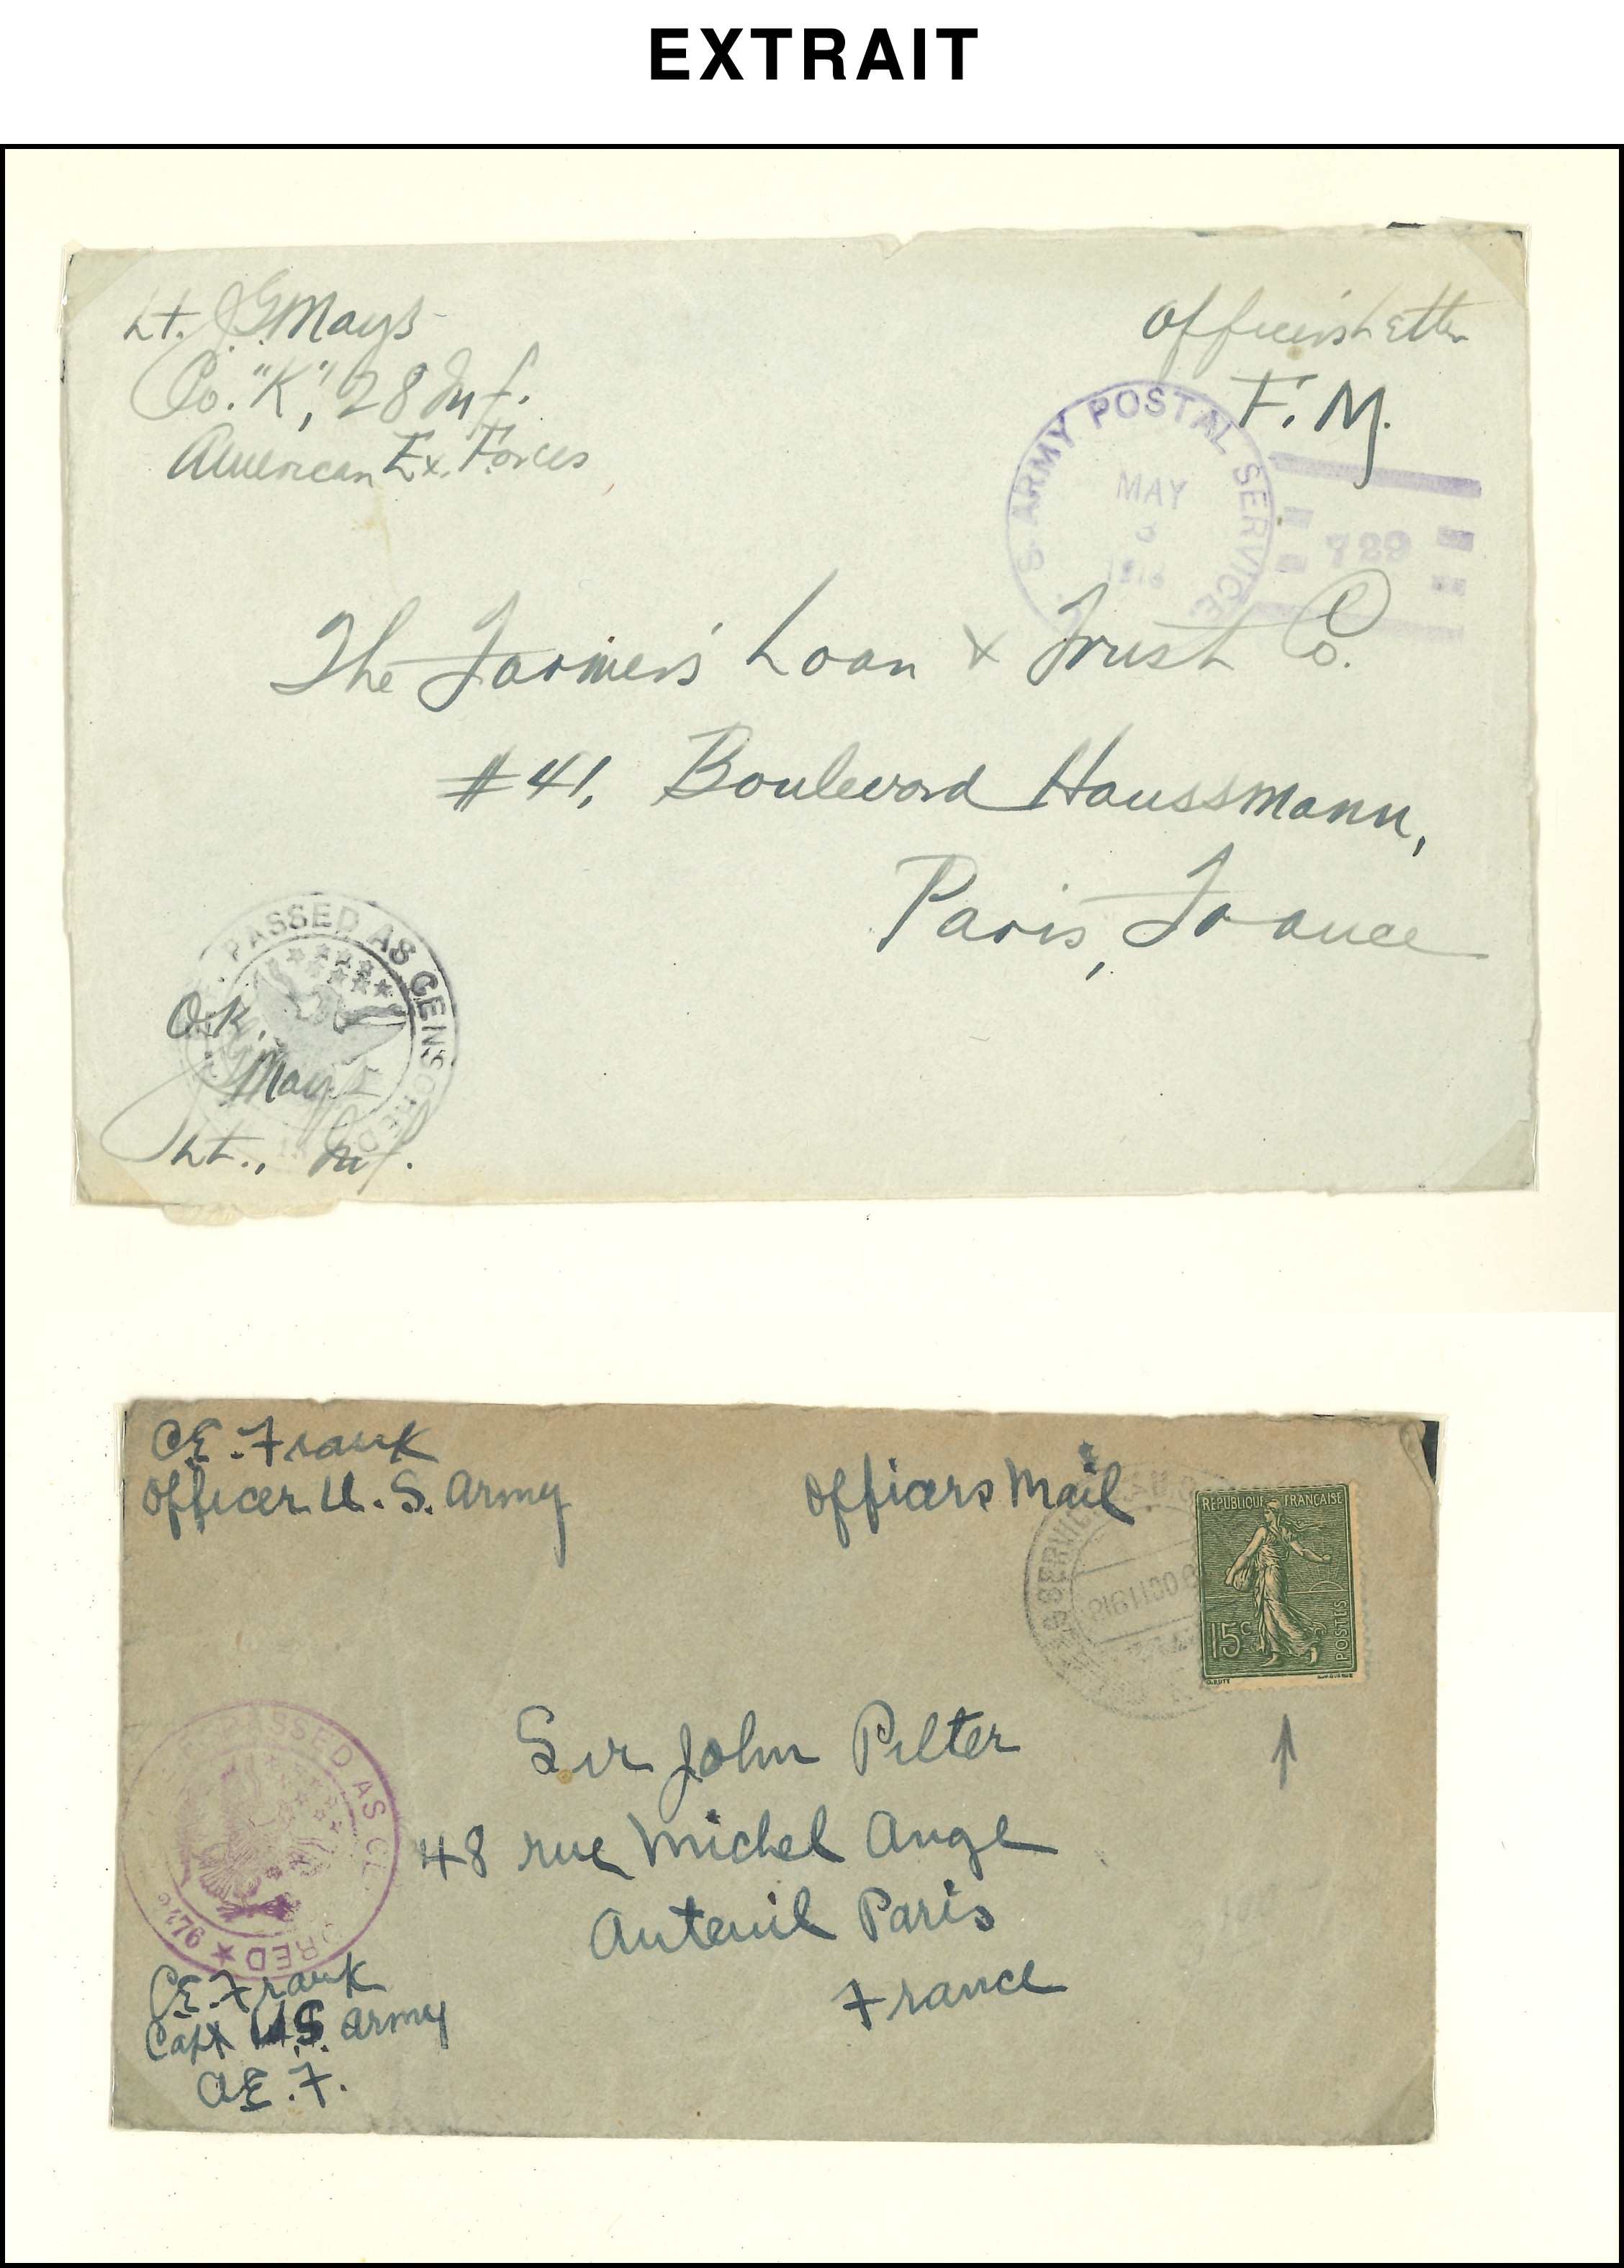 EXTRAIT
Lt. J.G. Mays
Co. "K", 28 Inf.
American Ex. Forces
Officer's Letter
F. M.
S. ARMY POSTAL SERVICE
MAY
1918
729
The Farmer's Loan & Trust Co.
#41, Boulevard Haussmann,
Paris, France
PASSED AS CENSORED
O.K.
Mays
Lt., Inf.
CE. Frank
Officer U. S. Army
Officers Mail
SERVICE
REPUBLIQUE FRANÇAISE
15c
POSTES
Sir John Pilter
48 rue Michel Ange
Auteuil Paris
France
PASSED AS CE
ORED ★
276
CE. Frank
Capt U.S. Army
AE. F.